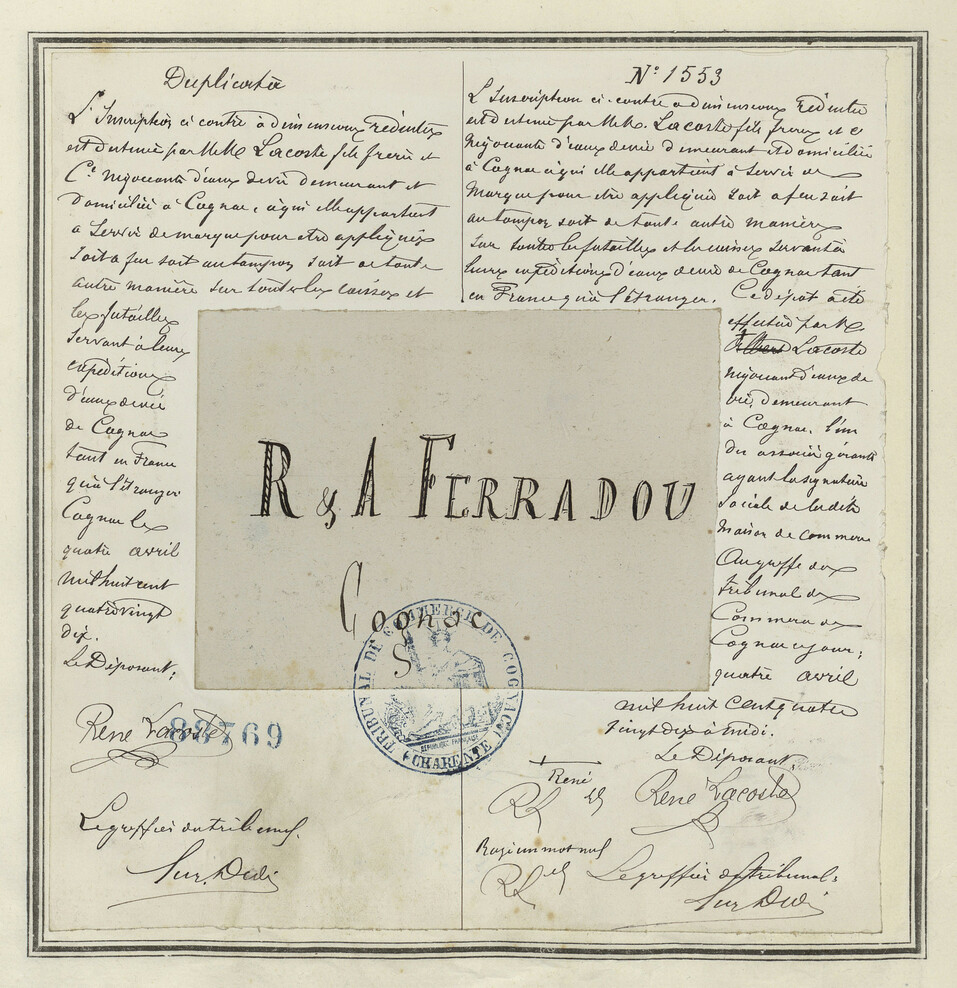 Duplicata
L'Inscription ci contre à dimensions réduites
est destinée par MM Lacoste fils frères et
Cie Négociants d'eaux de vie demeurant et
Domiciliés à Cognac, à qui elle appartient
a Servir de marque pour être appliquée
Soit à feu soit au tampon soit de toute
autre manière sur toutes les caisses et
les futailles
Servant à leurs
expéditions
d'eaux de vie
de Cognac
tant en France
qu'à l'étranger
Cognac le
quatre avril
mil huit cent
quatre vingt
dix.
Le Déposant,
René Lacoste
88769
Le greffier du tribunal.
N° 1553
L'Inscription ci-contre à dimensions réduites
est destinée par MM. Lacoste fils frères et Cie
Négociants d'eaux de vie demeurant et domiciliés
à Cognac à qui elle appartient à Servir de
Marque pour être appliquée soit à feu soit
au tampon soit de toute autre manière
sur toutes les futailles et les caisses servant à
leurs expéditions d'eaux de vie de Cognac tant
en France qu'à l'étranger. Ce dépôt a été
effectué par M.
Albert Lacoste
négociant d'eaux de
vie, demeurant
à Cognac, l'un
des associés gérants
ayant la signature
Sociale de la dite
Maison de commerce
Au greffe du
tribunal de
Commerce de
Cognac ce jour;
quatre avril
mil huit cent quatre
vingt dix à midi.
Le Déposant,
René Lacoste
René
RL
Rayé un mot nul
RL
Le greffier du tribunal:
R & A FERRADOU
Cognac
TRIBUNAL DE COMMERCE DE COGNAC
RÉPUBLIQUE FRANÇAISE
(CHARENTE)